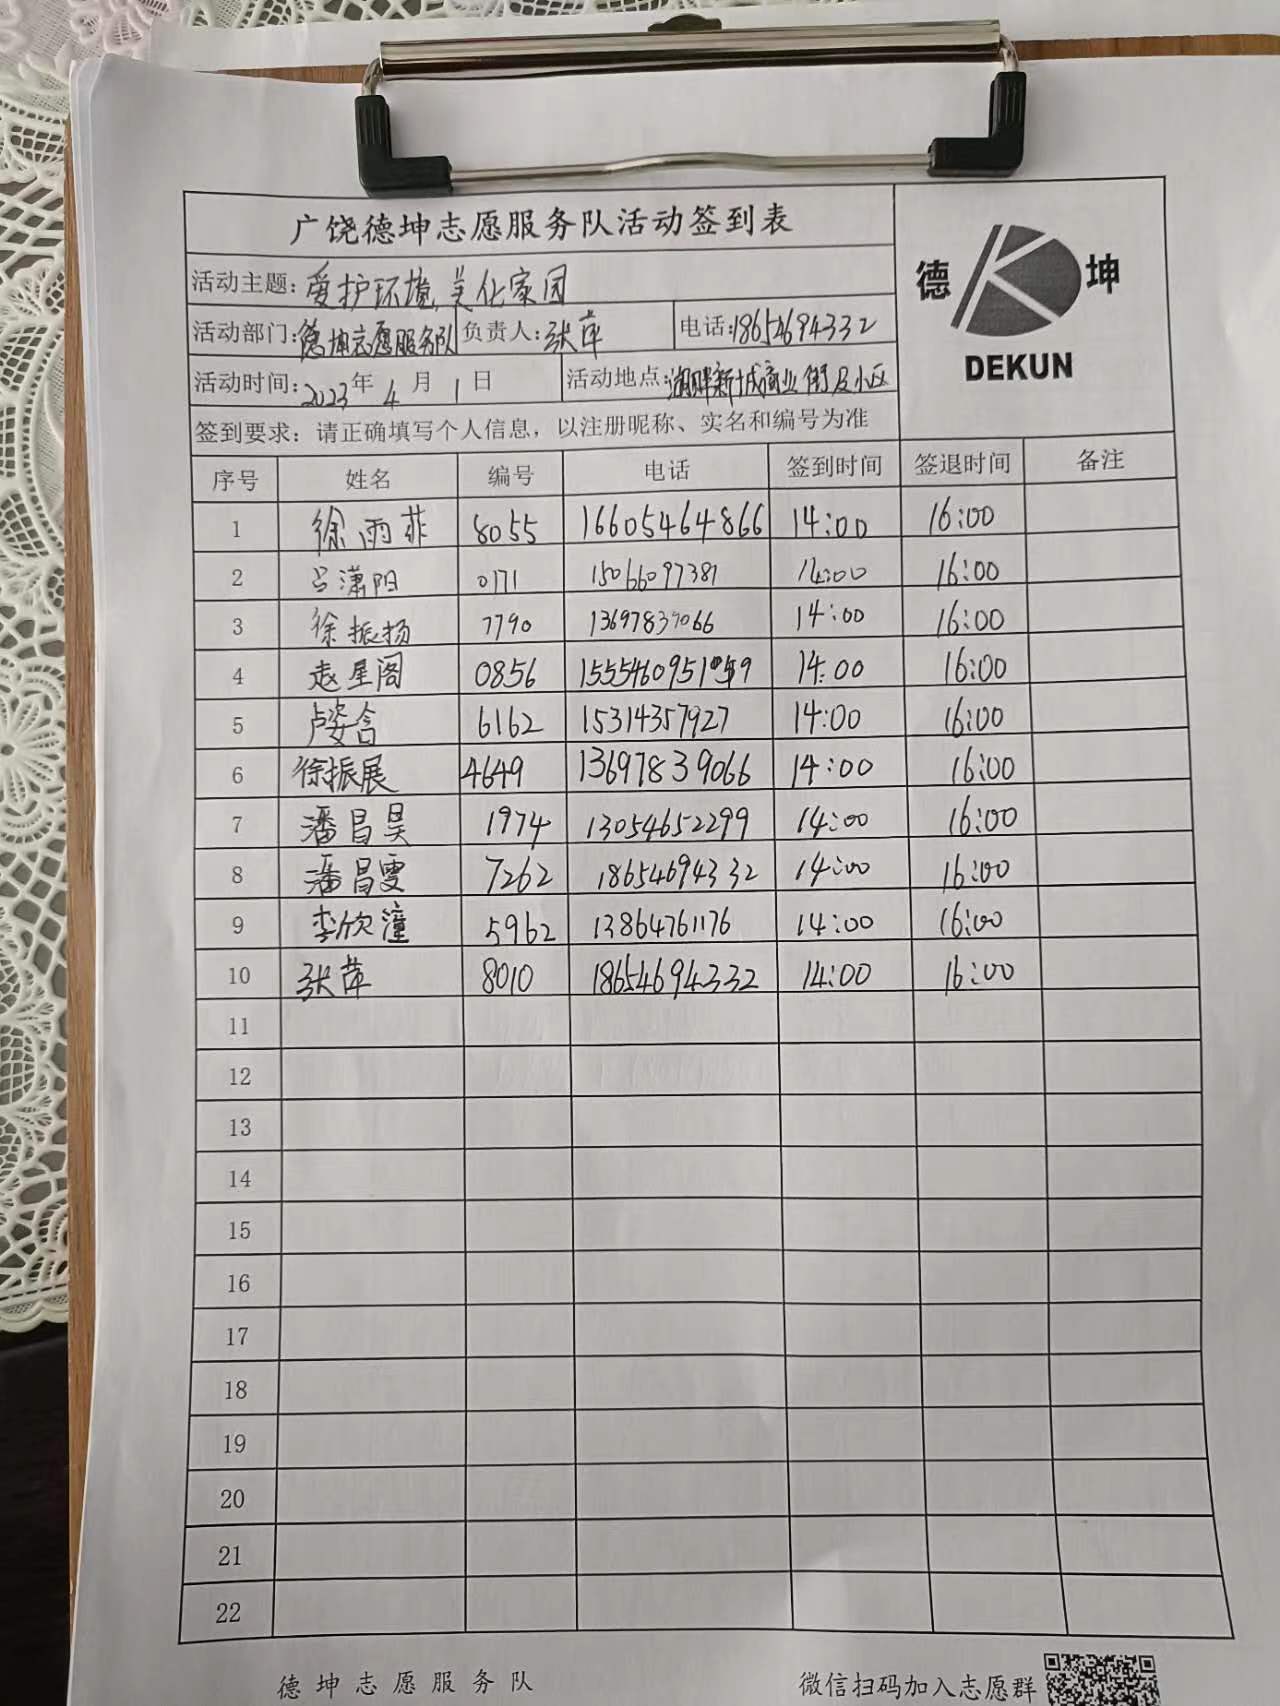 广饶德坤志愿服务队活动签到表
德 坤
DEKUN
活动主题: 爱护环境,美化家园
活动部门: 德坤志愿服务队 负责人: 张萍 电话: 18654694332
活动时间: 2023年 4 月 1 日 活动地点: 湖畔新城商业街及小区
签到要求: 请正确填写个人信息, 以注册昵称、实名和编号为准
序号 姓名 编号 电话 签到时间 签退时间 备注
1 徐雨菲 8055 16605464866 14:00 16:00
2 吕潇阳 0171 15066097381 14:00 16:00
3 徐振扬 7790 13697839066 14:00 16:00
4 赵星阁 0856 14:00 16:00
5 卢姿含 6162 15314357927 14:00 16:00
6 徐振展 4649 13697839066 14:00 16:00
7 潘昌昊 1974 13054652299 14:00 16:00
8 潘昌雯 7262 18654694332 14:00 16:00
9 李欣潼 5962 13864761176 14:00 16:00
10 张萍 8010 18654694332 14:00 16:00
11
12
13
14
15
16
17
18
19
20
21
22
德坤志愿服务队 微信扫码加入志愿群